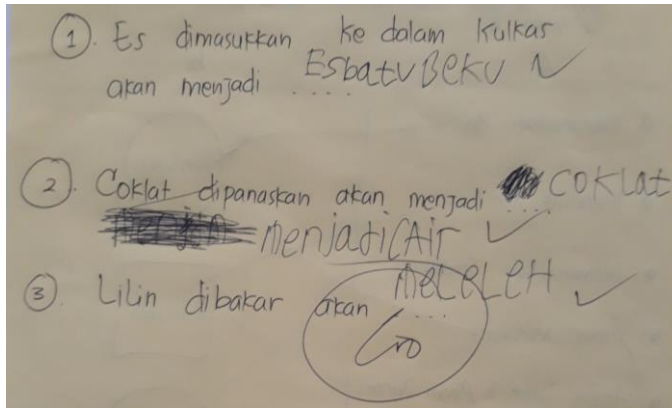 1. Es dimasukkan ke dalam kulkas
akan menjadi .... EsbatuBeku
2. Coklat dipanaskan akan menjadi .... COKLat
menjadiCAir
3. Lilin dibakar akan .... MeLeLeH
100